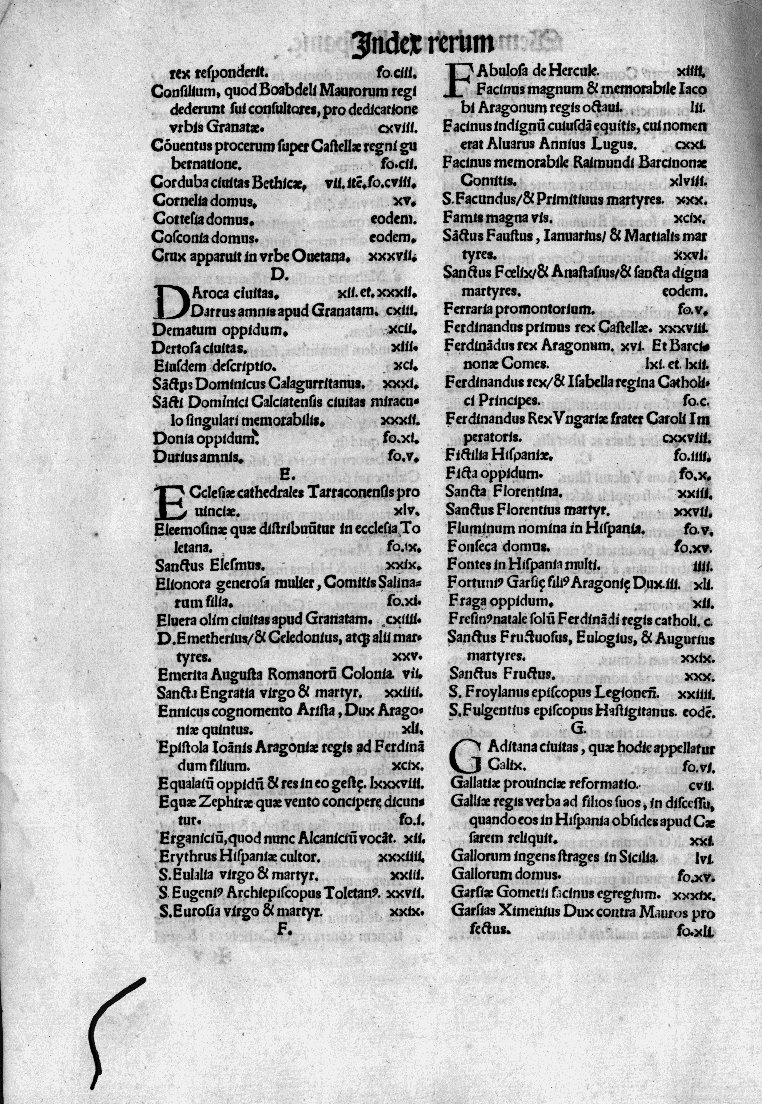 Index rerum
rex responderit. fo.ciii.
Consilium, quod Boabdeli Maurorum regi
dederunt sui consultores, pro dedicatione
vrbis Granatæ. cxviii.
Cõuentus procerum super Castellæ regni gu
bernatione. fo.cii.
Corduba ciuitas Bethicæ. vii. itẽ, fo.cviii.
Cornelia domus. xv.
Cottesia domus. eodem.
Cosconia domus. eodem.
Crux apparuit in vrbe Ouetana. xxxvii.
D.
DAroca ciuitas. xii. et. xxxii.
Darrus amnis apud Granatam. cxiii.
Dematum oppidum. xcii.
Dertosa ciuitas. xiii.
Eiusdem descriptio. xci.
Sãctus Dominicus Calagurritanus. xxxi.
Sãcti Dominici Calciatensis ciuitas miracu-
lo singulari memorabilis. xxxii.
Donia oppidum. fo.xi.
Durius amnis. fo.v.
E.
ECclesiæ cathedrales Tarraconensis pro
uinciæ. xlv.
Eleemosinæ quæ distribuũtur in ecclesia To
letana. fo.ix.
Sanctus Elesmus. xxix.
Elionora generosa mulier, Comitis Salina-
rum filia. fo.xi.
Eluera olim ciuitas apud Granatam. cxiiii.
D. Emetherius, /& Celedonius, atqȝ alii mar-
tyres. xxv.
Emerita Augusta Romanorũ Colonia. vii.
Sancta Engratia virgo & martyr. xxiiii.
Ennicus cognomento Arista, Dux Arago-
niæ quintus. xli.
Epistola Ioãnis Aragoniæ regis ad Ferdinã
dum filium. xcix.
Equalatũ oppidũ & res in eo gestę. lxxxviii.
Equæ Zephiræ quæ vento concipere dicun-
tur. fo.i.
Erganiciũ, quod nunc Alcaniciũ vocãt. xii.
Erythrus Hispaniæ cultor. xxxiiii.
S. Eulalia virgo & martyr. xxiii.
S. Eugeniꝰ Archiepiscopus Toletanꝰ. xxvii.
S. Eurosia virgo & martyr. xxix.
F.
FAbulosa de Hercule. xiiii.
Facinus magnum & memorabile Iaco
bi Aragonum regis octaui. lii.
Facinus indignũ cuiusdã equitis, cui nomen
erat Aluarus Annius Lugus. cxxi.
Facinus memorabile Raimundi Barcinonæ
Comitis. xlviii.
S. Facundus, /& Primitiuus martyres. xxx.
Famis magna vis. xcix.
Sãctus Faustus, Ianuarius/ & Martialis mar
tyres. xxvi.
Sanctus Fœlix/ & Anastasius/ & sancta digna
martyres. eodem.
Ferraria promontorium. fo.v.
Ferdinandus primus rex Castellæ. xxxviii.
Ferdinãdus rex Aragonum. xvi. Et Barci-
nonæ Comes. lxi. et. lxii.
Ferdinandus rex/ & Isabella regina Catholi-
ci Principes. fo.c.
Ferdinandus Rex Vngariæ frater Caroli Im
peratoris. cxxviii.
Fictilia Hispaniæ. fo.iiii.
Ficta oppidum. fo.x.
Sancta Florentina. xxiii.
Sanctus Florentius martyr. xxvii.
Fluminum nomina in Hispania. fo.v.
Fonseca domus. fo.xv.
Fontes in Hispania multi. iiii.
Fortuniꝰ Garsię filiꝰ Aragonię Dux. iii. xli.
Fraga oppidum. xii.
Fresinꝰ natale solũ Ferdinãdi regis catholi. c.
Sanctus Fructuosus, Eulogius, & Augurius
martyres. xxix.
Sanctus Fructus. xxx.
S. Froylanus episcopus Legionen̄. xxiiii.
S. Fulgentius episcopus Hastigitanus. eodẽ.
G.
GAditana ciuitas, quæ hodie appellatur
Calix. fo.vi.
Gallatiæ prouinciæ reformatio. cvii.
Galliæ regis verba ad filios suos, in discessu,
quando eos in Hispania obsides apud Cæ
sarem reliquit. xxi.
Gallorum ingens strages in Sicilia. lvi.
Gallorum domus. fo.xv.
Garsiæ Gometii facinus egregium. xxxix.
Garsias Ximenius Dux contra Mauros pro
fectus. fo.xli